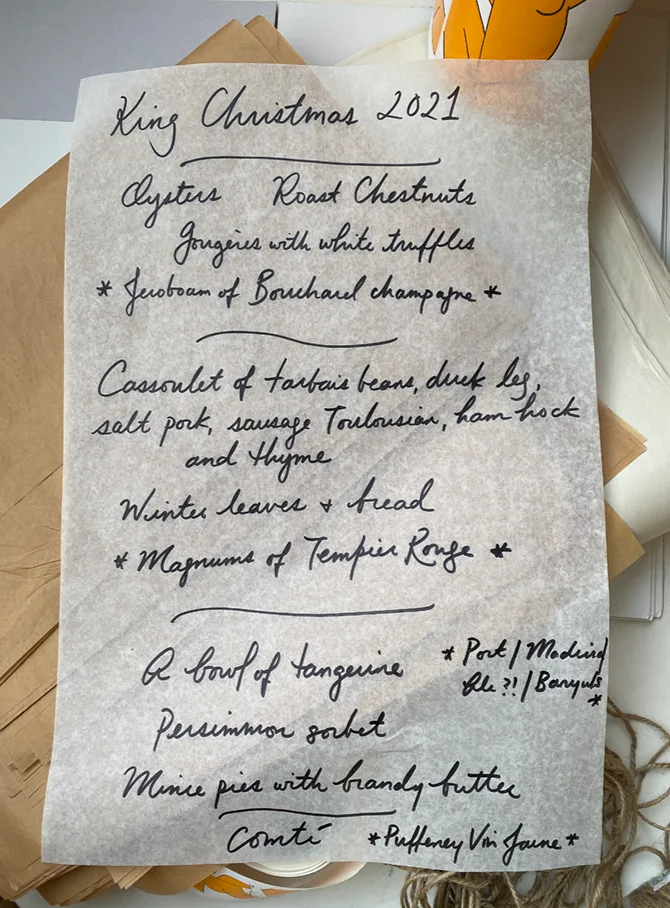 King Christmas 2021
Oysters Roast Chestnuts
Gougères with white truffles
* Jeroboam of Bouchard champagne *
Cassoulet of tarbais beans, duck leg,
salt pork, sausage Toulousian, ham hock
and thyme
Winter leaves + bread
* Magnums of Tempier Rouge *
A bowl of tangerine
* Port / Madeira
?! / Banyuls
*
Persimmon sorbet
Mince pies with brandy butter
Comté * Puffeney Vin Jaune *